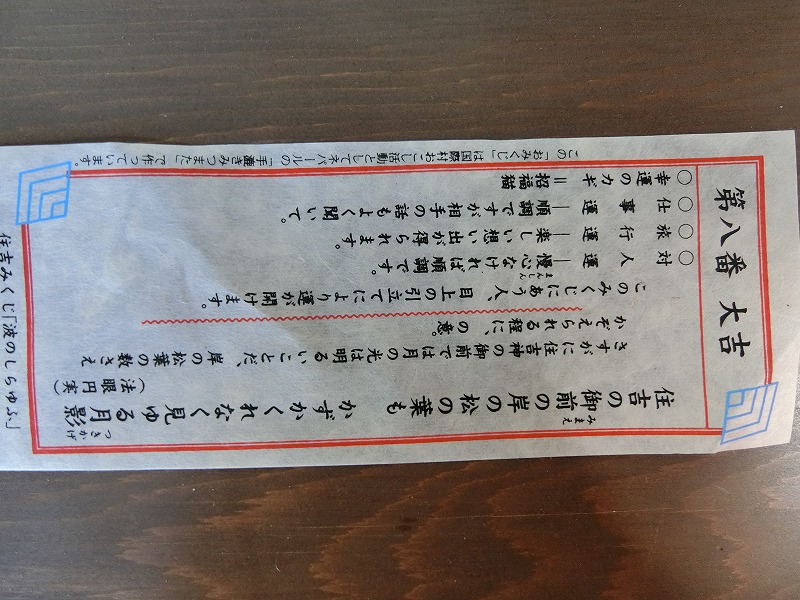 第八番 大吉
みまえ
住吉の御前の岸の松の葉も かずかくれなく見ゆる月影
つきかげ
（法眼円実）
さすがに住吉神の御前では月の光は明るいことだ、岸の松葉の数さえ
かぞえられる程に、の意。
このみくじにあう人、目上の引立てにより運が開けます。
まんしん
○対人運―慢心なければ順調です。
○旅行運―楽しい想い出が得られます。
○仕事運―順調ですが相手の話もよく聞いて。
○幸運のカギ＝招福猫
この「おみくじ」は国際村おこし活動としてネパールの「手漉きみつまた」で作っています。
住吉みくじ「波のしらゆふ」